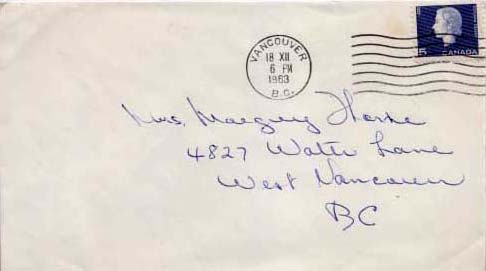 VANCOUVER
18 XII
6 PM
1963
B.C.
5 CANADA
Mrs. Horne
4827 Water Lane
West Vancouver
BC